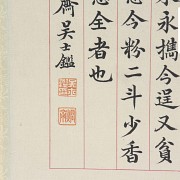 永永攜今逞又貧
念今粉二斗少香
念全者也
齋吳士鑑